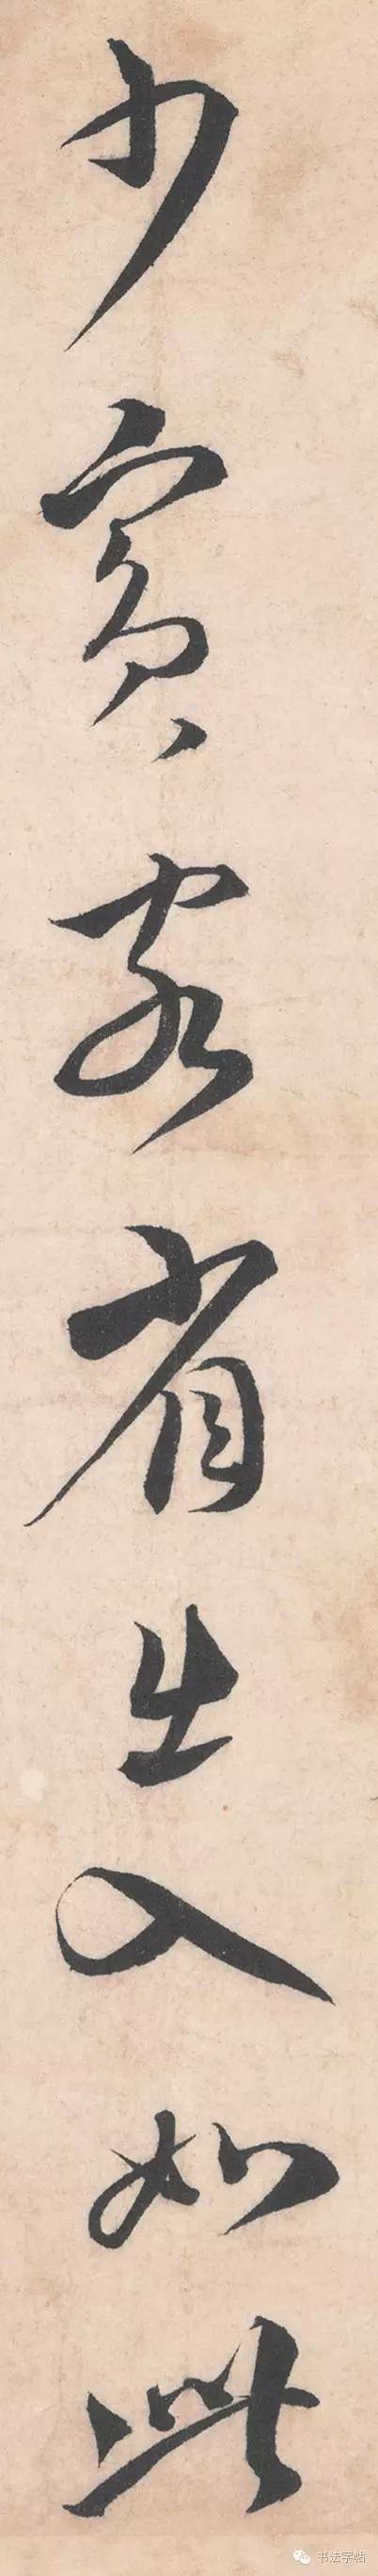 少賓客省出入如此
书法字帖